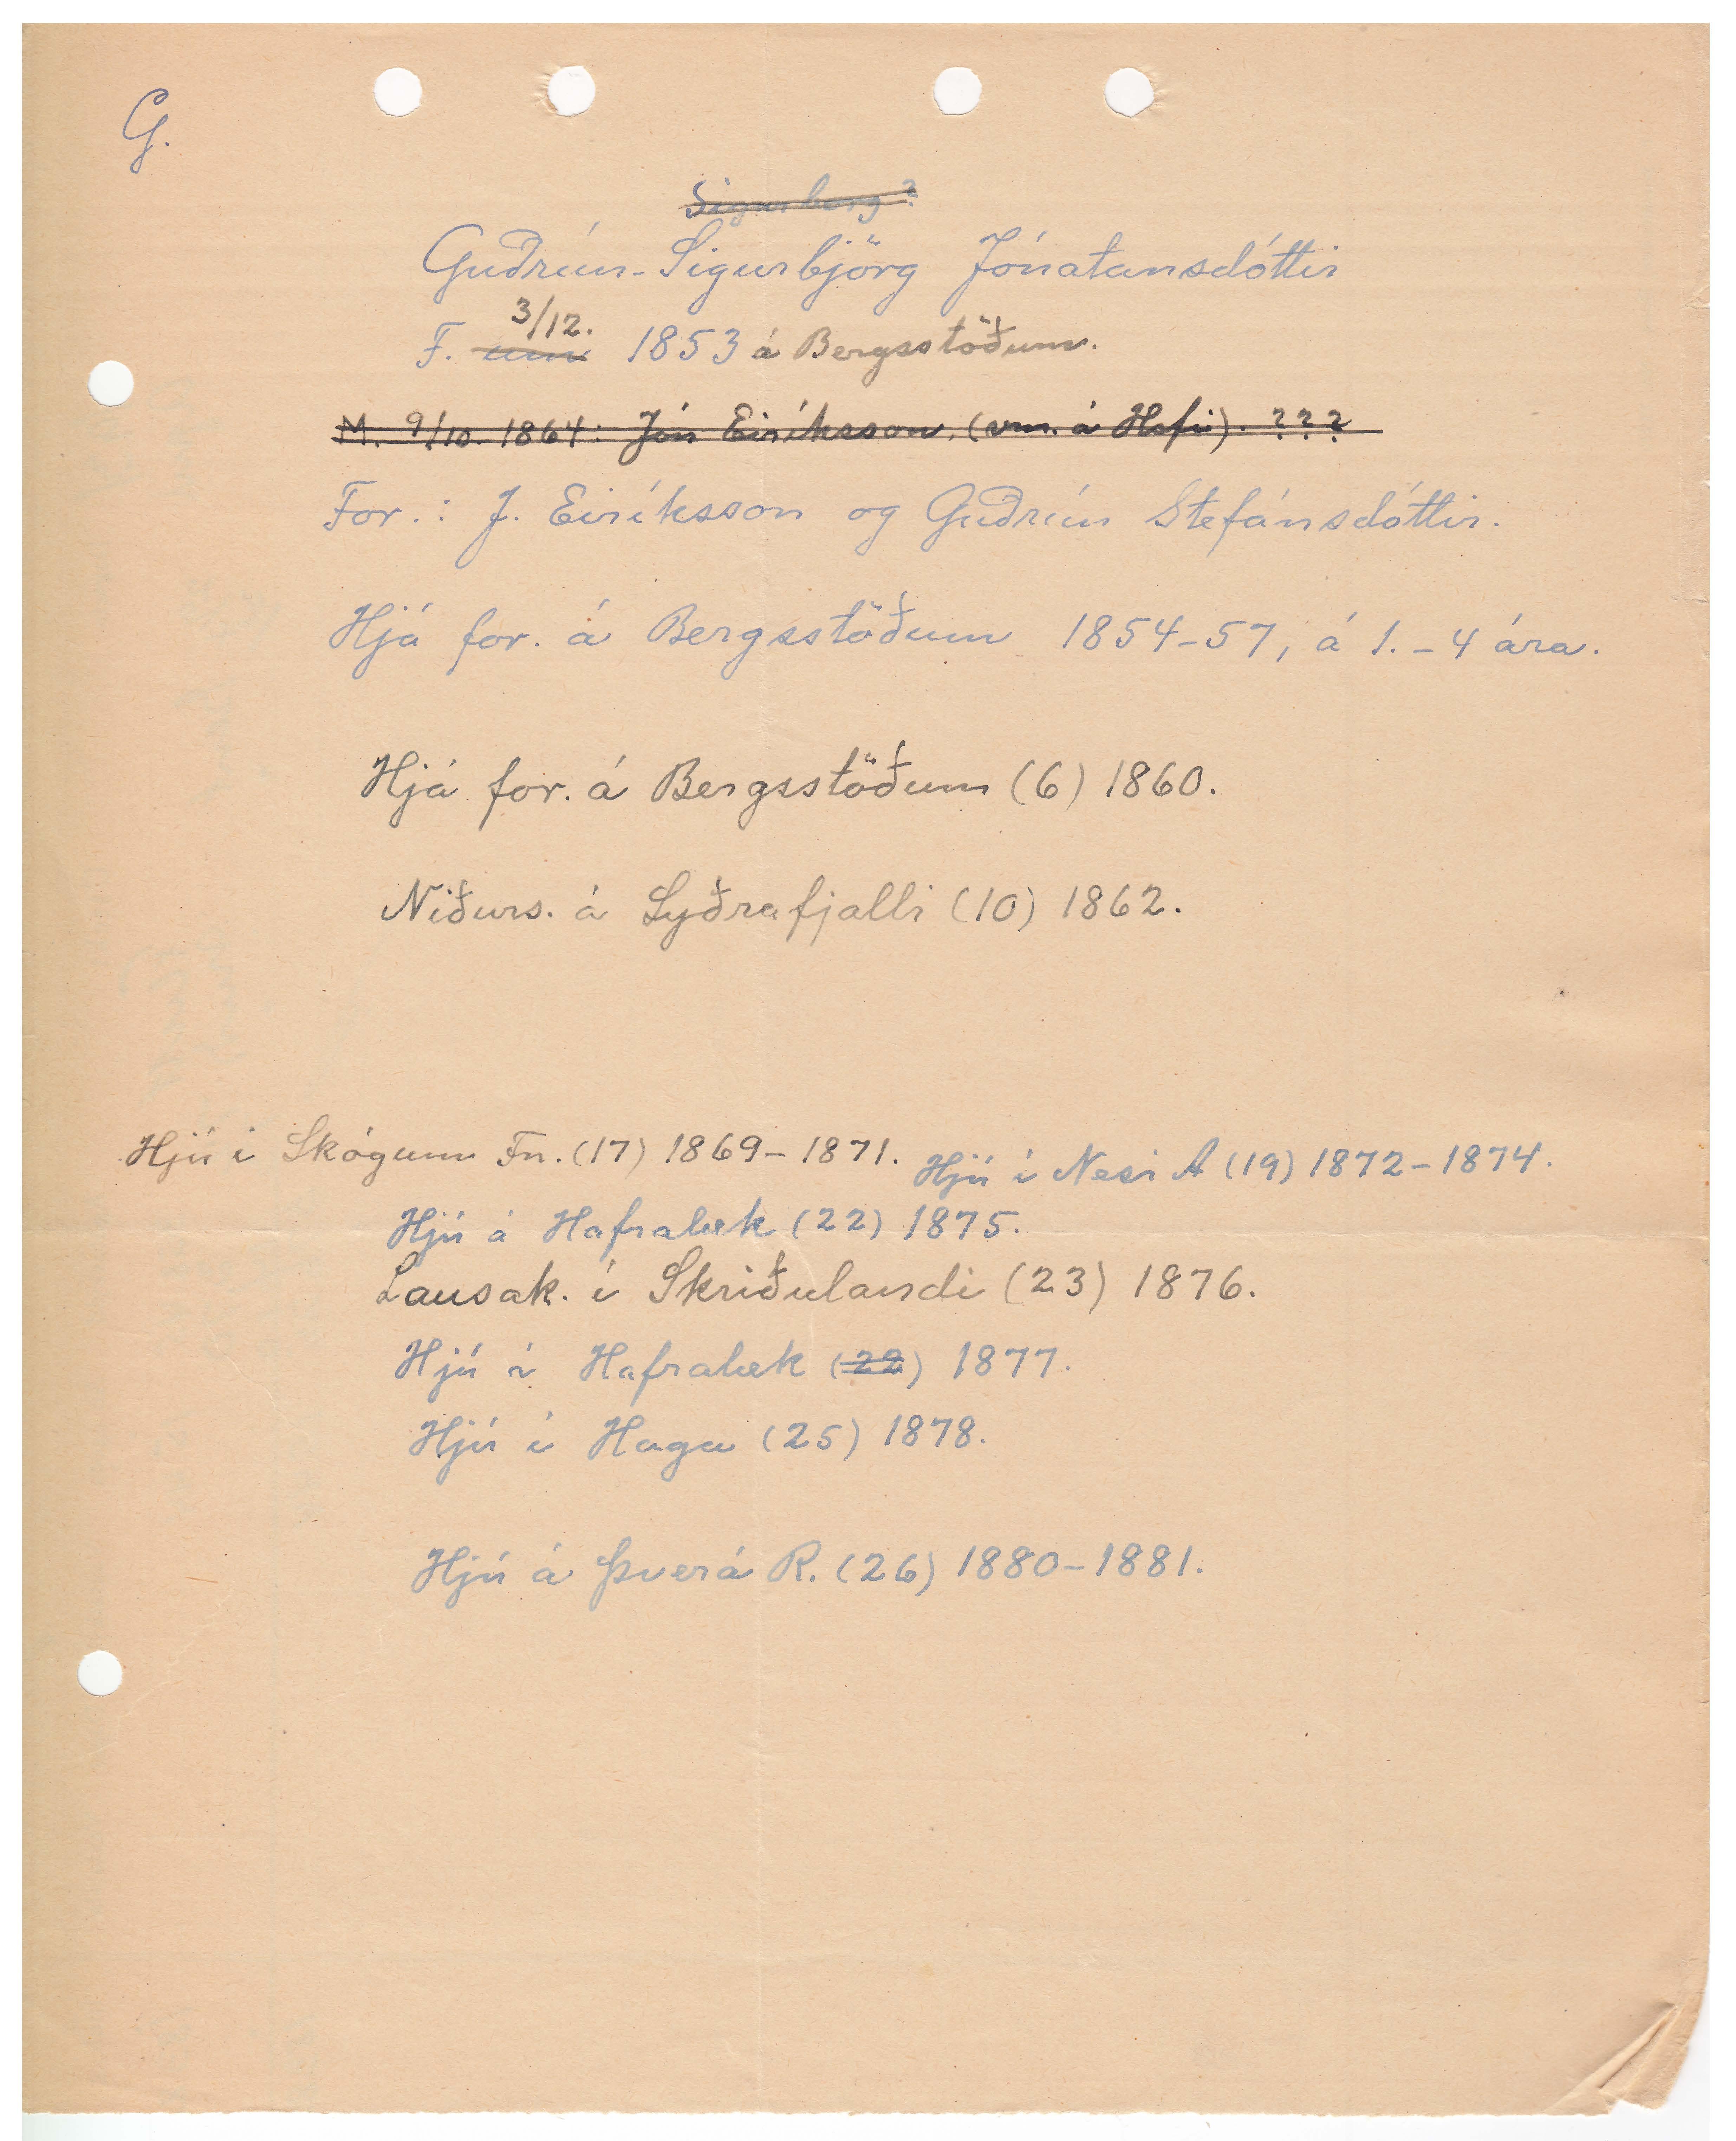 G.
Sigurberg?
Guðrún-Sigurbjörg Jónatansdóttir
3/12.
F. um 1853 á Bergsstöðum.
M. 9/10. 1864: Jón Eiríksson, (vm. á Hafu). ???
For.: J. Eiríksson og Guðrún Stefánsdóttir.
Hjá for. á Bergsstöðum 1854-57, á 1.-4 ára.
Hjá for. á Bergsstöðum (6) 1860.
Niðurs. á Syðrafjalli (10) 1862.
Hjú í Skógum Fn. (17) 1869-1871. Hjú í Nesi A (19) 1872-1874.
Hjú á Hafralæk (22) 1875.
Lausak. í Skriðulandi (23) 1876.
Hjú á Hafralæk (22) 1877.
Hjú í Haga (25) 1878.
Hjú á Þverá R. (26) 1880-1881.